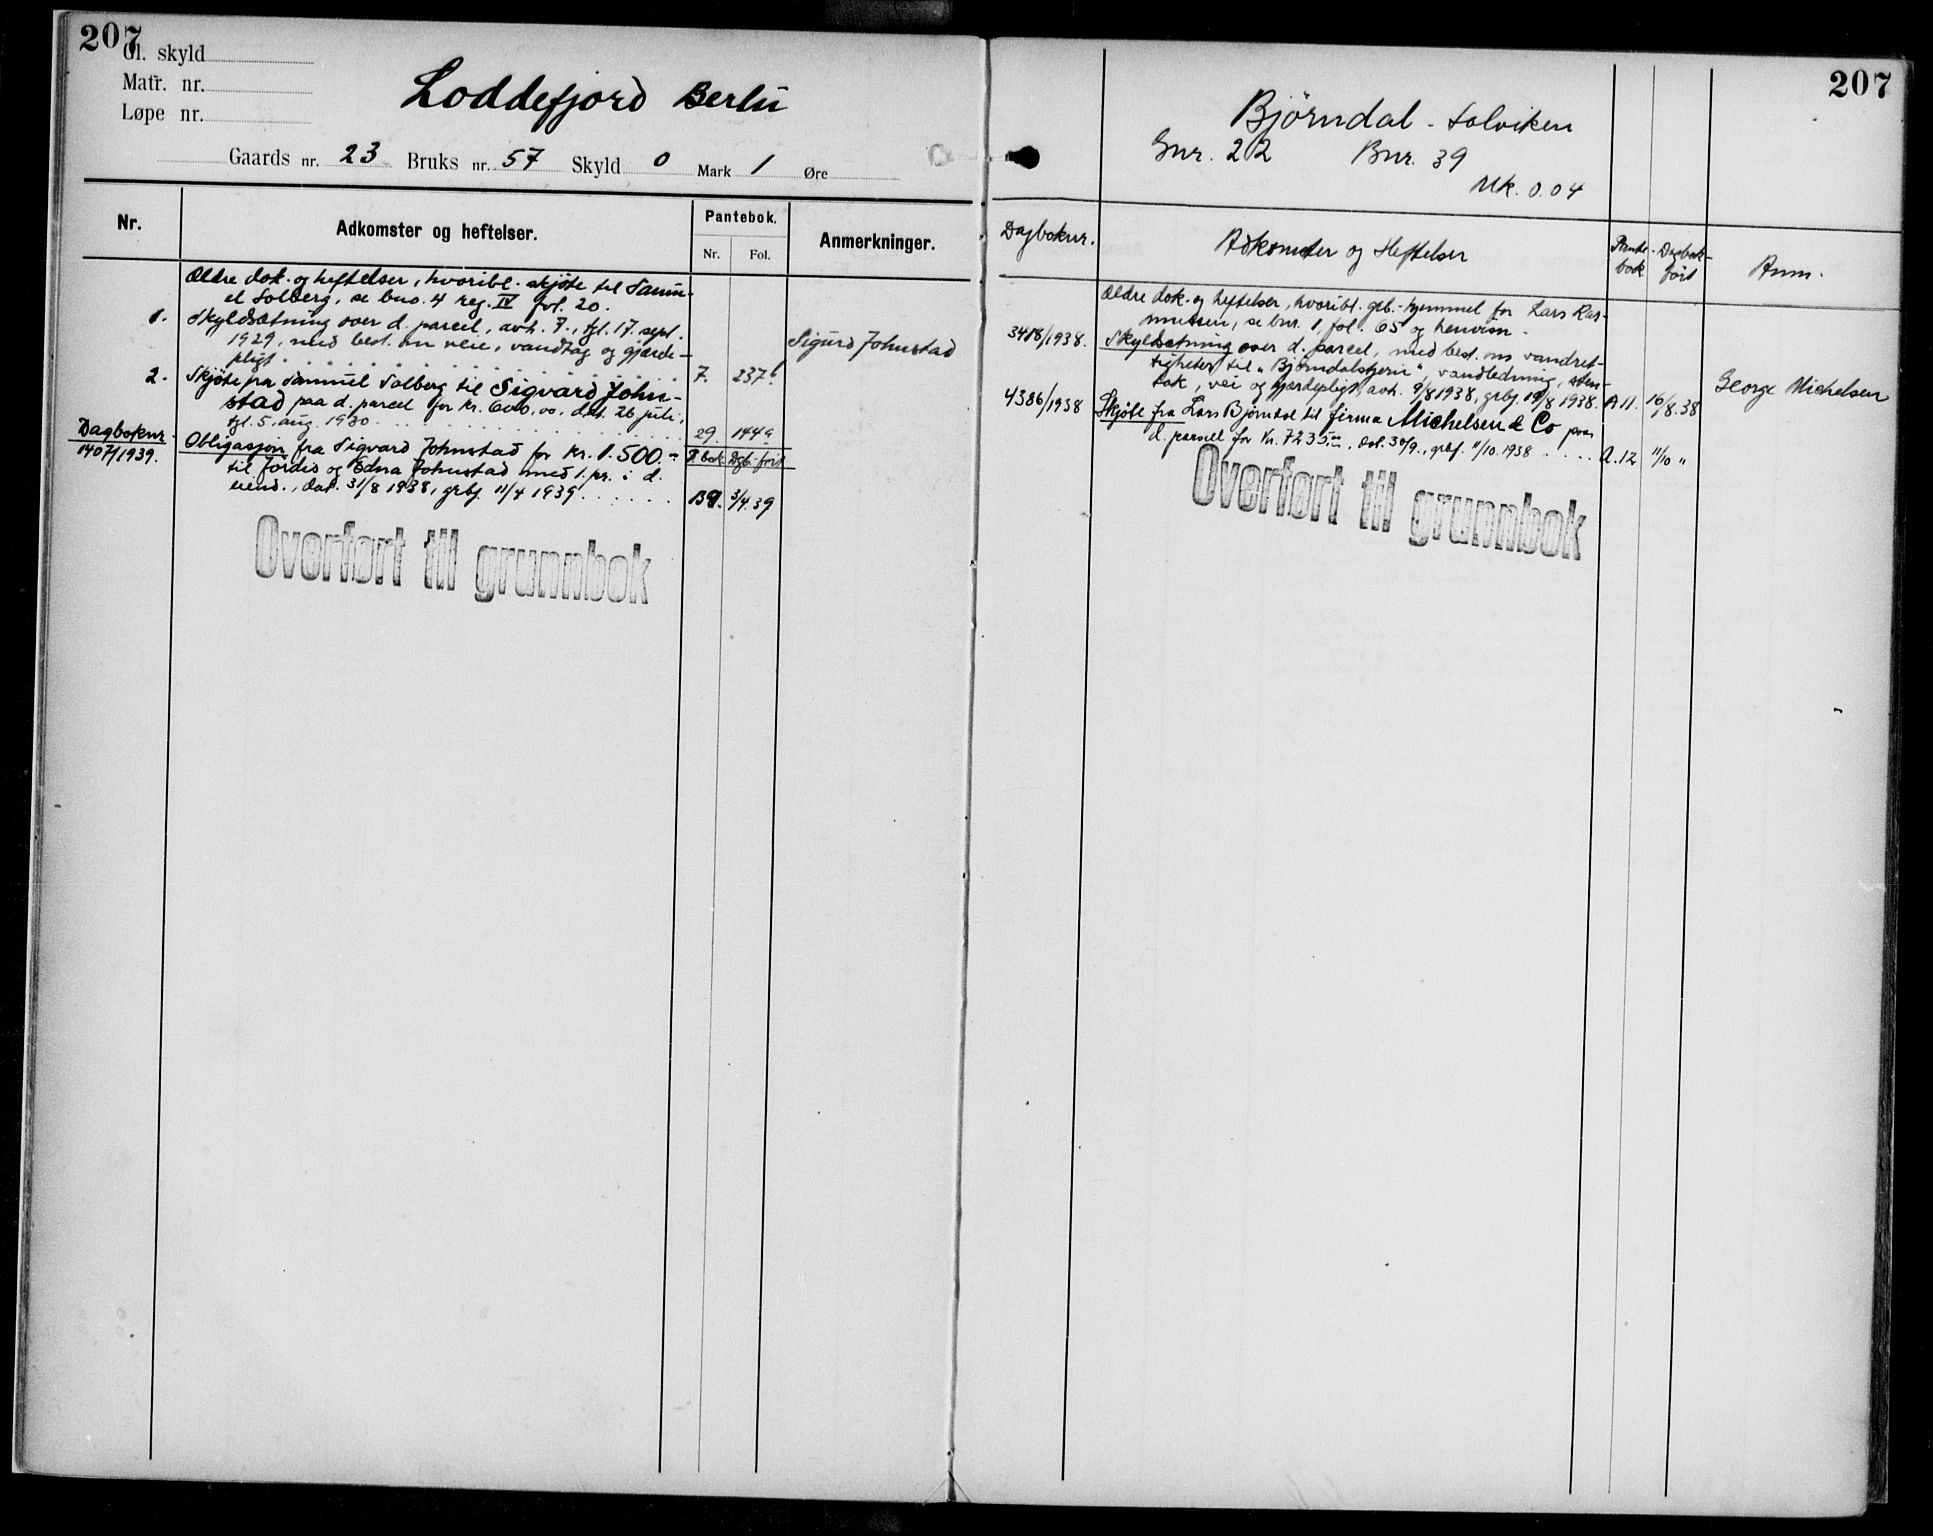 207
Gl. skyld
Matr. nr.
Løpe nr.
Loddefjord Berlii
Gaards nr. 23 Bruks nr. 57 Skyld 0 Mark 1 Øre
Nr.
Adkomster og heftelser.
Pantebok.
Nr. Fol.
Anmerkninger.
Ældre dok. og heftelser, hvoribl. skjøte til Samu-
el Solberg, se bno. 4 reg. IV fol. 20.
1. Skyldsætning over d. parcel, avh. 7., tgl. 17. sept.
1929, med best. om veie, vandtag og gjærde-
pligt 7. 237b
Sigurd Johnstad
2. Skjøte fra Samuel Solberg til Sigvard John-
stad paa d. parcel for kr. 600,00. dat. 26 juli,
tgl. 5. aug. 1930 29. 144a
Dagboknr. P. bok Dgb. ført
1407/1939. Obligasjon fra Sigvard Johnstad for kr. 1.500.-
til Jordis og Edna Johnstad med 1. pr. i d.
eiend., dat. 31/8 1938, grbf. 11/4 1939 3/4.39
Overført til grunnbok
207
Bjørndal - Solviken
Gnr. 22 Bnr. 39
Mk. 0.04
Dagboknr.
Adkomster og Heftelser
Pante-
bok
Dagbok-
ført
Anm.
Ældre dok. og heftelser, hvoribl. grb.-hjemmel for Lars Ras-
mussen, se bnr. 1, fol. 65 og henvisn.
3418/1938. Skyldsetning over d. parcel, med best. om vandret-
tigheter til "Bjørndalstjern", vandledning, sten-
tak, vei og gjerdepligt, avh. 9/8 1938, grbf. 19/8 1938. A 11. 16/8.38
George Michelsen
4386/1938 Skjøte fra Lars Bjørndal til firma Michelsen & Co paa
d. parsel for Kr. 7235.00, dat. 30/9., grbf. 11/10. 1938 A.12 11/10 "
Overført til grunnbok